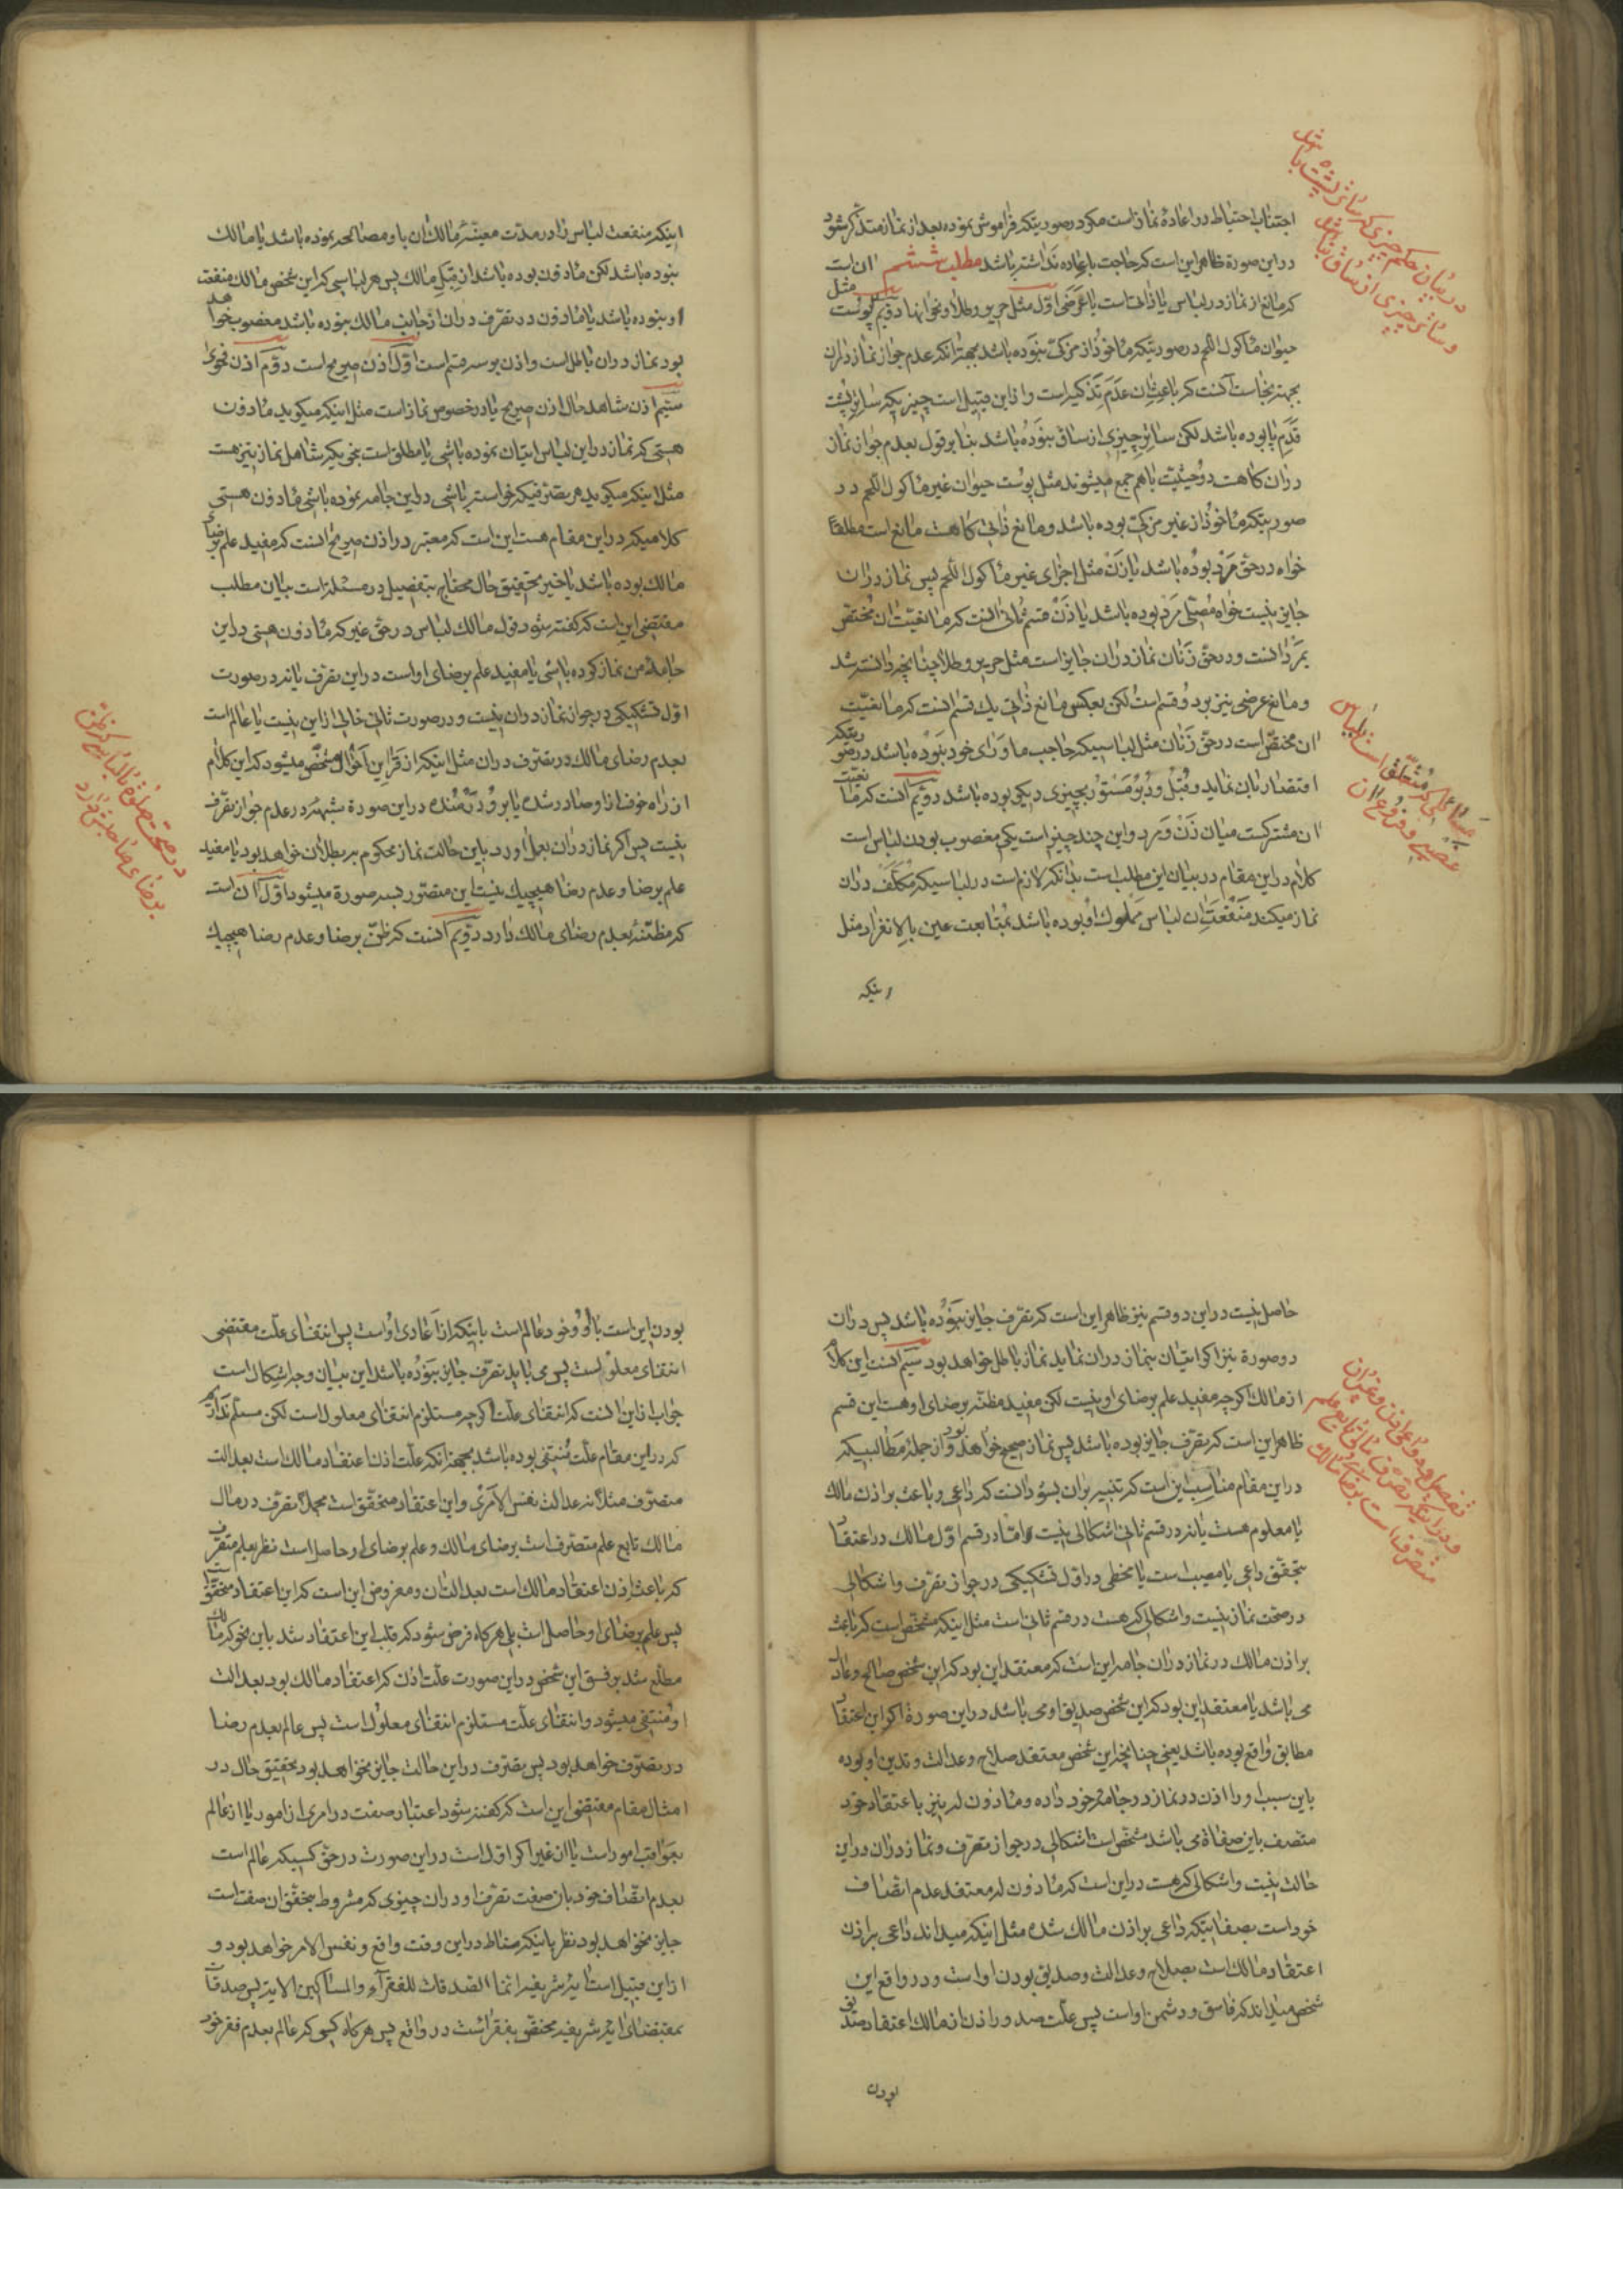 اجتناب احتیاط در اعاده نماز است مکر در صورتیکه فراموش نموده بعد از نماز متذکر شود
در این صورة ظاهر این است که حاجت باعاده نداشته باشد مطلب ششم ان است
که مانع از نماز در لباس یا ذاتی است یا عرضی اول مثل حریر و طلا و نحو انها دویم مثل پوست
حیوان ماکول اللحم در صورتیکه ماخوذ از مزکی نبوده باشد بجهة انکه عدم جواز نماز دران
بجهة نجاست آنست که باعث ان عدم تذکیه است و از این قبیل است چیزیکه ساتر پشت
قدم پا بوده باشد لکن ساتر چیزی از ساق نبوده باشد بنا بر قول بعدم جواز نماز
دران کاهست دو حیثیت باهم جمع میشوند مثل پوست حیوان غیر ماکول اللحم در
صورتیکه ماخوذ از غیر مزکی بوده باشد و مانع ذاتی کاهست مانع است مطلقا
خواه در حق مرد بوده باشد یا زن مثل اجزای غیر ماکول اللحم پس نماز دران
جایز نیست خواه مصلی مرد بوده باشد یا زن قسم ثانی انست که مانعیت ان مختص
بمرد انست و در حق زنان نماز دران جایز است مثل حریر و طلا چنانچه دانسته شد
و مانع عرضی نیز بر دو قسم است لکن بعکس مانع ذاتی یک قسم انست که مانعیت
ان مختص است در حق زنان مثل لباسیکه حاجب ماورای خود نبوده باشد در صورتیکه
اقتصار بان نماید و قبل و دبر مستور بچیزی دیکر بوده باشد دویم آنست که مانعیت
ان مشترکست میان زن و مرد و این چند چیز است یکی مغصوب بودن لباس است
کلام در این مقام در بیان این مطلب است بدانکه لازم است در لباسیکه مکلف دران
نماز میکند منفعت ان لباس مملوک او بوده باشد بمتابعت عین یا بالانفراد مثل
اینکه
در بیان حکم چیزی که ساتر پشت پا باشد
و ساتر چیزی از ساق نباشد
مسائلی که متعلق است بلباس
غصبی و فروع ان
اینکه منفعت لباس را در مدت معینه مالک ان باو مصالحه نموده باشد یا مالک
نبوده باشد لکن ماذون بوده باشد از قبل مالک پس هر لباسی که این شخص مالک منفعت
او نبوده باشد یا ماذون در تصرف دران از جانب مالک نبوده باشد مغصوب خواهد
بود نماز دران باطل است و اذن بر سه قسم است اول اذن صریح است دوم اذن فحوی
سیم اذن شاهد حال اذن صریح یا در خصوص نماز است مثل اینکه میکوید ماذون
هستی که نماز در این لباس اتیان نموده باشی یا مطلق است بنحویکه شامل نماز نیز هست
مثل اینکه میکوید هر تصرفیکه خواسته باشی در این جامه نموده باشی ماذون هستی
کلامیکه در این مقام هست این است که معتبر در اذن صریح انست که مفید علم برضای
مالک بوده باشد یا خیر تحقیق حال محتاج بتفصیل در مسئله است بیان مطلب
مقتضی این است که کفته شود قول مالک لباس در حق غیر که ماذون هستی در این
جامه من نماز کرده باشی یا مفید علم برضای او است در این تصرف یا نه در صورت
اول تشکیکی در جواز نماز دران نیست و در صورت ثانی خالی از این نیست یا عالم است
بعدم رضای مالک در تصرف دران مثل اینکه از قراین احوال مشخص میشود که این کلام
از راه خوف از او صادر شده یا برو درمانده در این صورة شبهه در عدم جواز تصرف
نیست پس اکر نماز دران بعمل اورد باین حالت نماز محکوم ببطلان خواهد بود یا مفید
علم برضا و عدم رضا هیچیک نیست این متصور بسه صورة میشود اول ان است
که مظنه بعدم رضای مالک دارد دویم آنست که ظن برضا و عدم رضا هیچیک
در صحت صلوة با لباس کسی
برضای صاحبش دارد
حاصل نیست در این دو قسم نیز ظاهر این است که تصرف جایز نبوده باشد پس دران
دو صورة نیز اکر اتیان بنماز دران نماید نماز باطل خواهد بود سیم انست این کلام
از مالک اکرچه مفید علم برضای او نیست لکن مفید مظنه برضای او هست این قسم
ظاهر این است که تصرف جایز بوده باشد پس نماز صحیح خواهد بود و از جمله مطالبیکه
در این مقام مناسب این است که تنبیه بران بشود انست که داعی و باعث بر اذن مالک
یا معلوم هست یا نه در قسم ثانی اشکالی نیست و اما در قسم اول مالک در اعتقاد
بتحقق داعی یا مصیب است یا مخطی در اول تشکیکی در جواز تصرف و اشکالی
در صحت نماز نیست و اشکالی که هست در قسم ثانی است مثل اینکه مشخص است که باعث
بر اذن مالک در نماز دران جامه این است که معتقد این بود که این شخص صالح و عادل
می باشد یا معتقد این بود که این شخص صدیق او می باشد در این صورة اکر این اعتقاد
مطابق واقع بوده باشد یعنی چنانچه این شخص معتقد صلاح و عدالت و تدین او بوده
باین سبب او را اذن در نماز در جامه خود داده و ماذون له نیز باعتقاد خود
متصف باین صفاة می باشد مشخص است اشکالی در جواز تصرف و نماز دران در این
حالت نیست و اشکالی که هست در این است که ماذون له معتقد عدم اتصاف
خود است بصفاتیکه داعی بر اذن مالک شده مثل اینکه میداند داعی بر اذن
اعتقاد مالک است بصلاح و عدالت و صدیق بودن او است و در واقع این
شخص میداند که فاسق و دشمن او است پس علت صدور اذن از مالک اعتقاد صدیق
بودن
بودن این است باو و خود عالم است باینکه از اعادی او است پس انتفای علت مقتضی
انتفای معلول است پس می باید تصرف جایز نبوده باشد این بیان وجه اشکال است
جواب از این انست که انتفای علت اکرچه مستلزم انتفای معلول است لکن مسلم نداریم
که در این مقام علت منتفی بوده باشد بجهة انکه علت اذن اعتقاد مالک است بعدالت
متصرف مثلا نه عدالت نفس الامری و این اعتقاد متحقق است مجملا تصرف در مال
مالک تابع علم متصرف است برضای مالک و علم برضای او حاصل است نظر بعلم متصرف
که باعث اذن اعتقاد مالک است بعدالت ان و مفروض این است که این اعتقاد متحقق است
پس علم برضای او حاصل است بلی هرکاه فرض شود که قلب این اعتقاد شد باین نحو که مالک
مطلع شد بر فسق این شخص در این صورت علت اذن که اعتقاد مالک بود بعدالت
او منتفی میشود و انتفای علت مستلزم انتفای معلول است پس عالم بعدم رضا
در تصرف خواهد بود پس تصرف در این حالت جایز نخواهد بود تحقیق حال در
امثال مقام مقتضی این است که کفته شود اعتبار صفت در امری از امور یا از عالم
بعواقب امور است یا از غیر اکر اول است در این صورت در حق کسیکه عالم است
بعدم اتصاف خود بان صفت تصرف او دران چیزی که مشروط بتحقق ان صفت است
جایز نخواهد بود نظر باینکه مناط در این وقت واقع و نفس الامر خواهد بود و
از این قبیل است ایه شریفه انما الصدقات للفقرآء والمساکین الایة پس صدقات
بمقتضای ایه شریفه مختص بفقرا است در واقع پس هرکاه کسی که عالم بعدم فقر خود